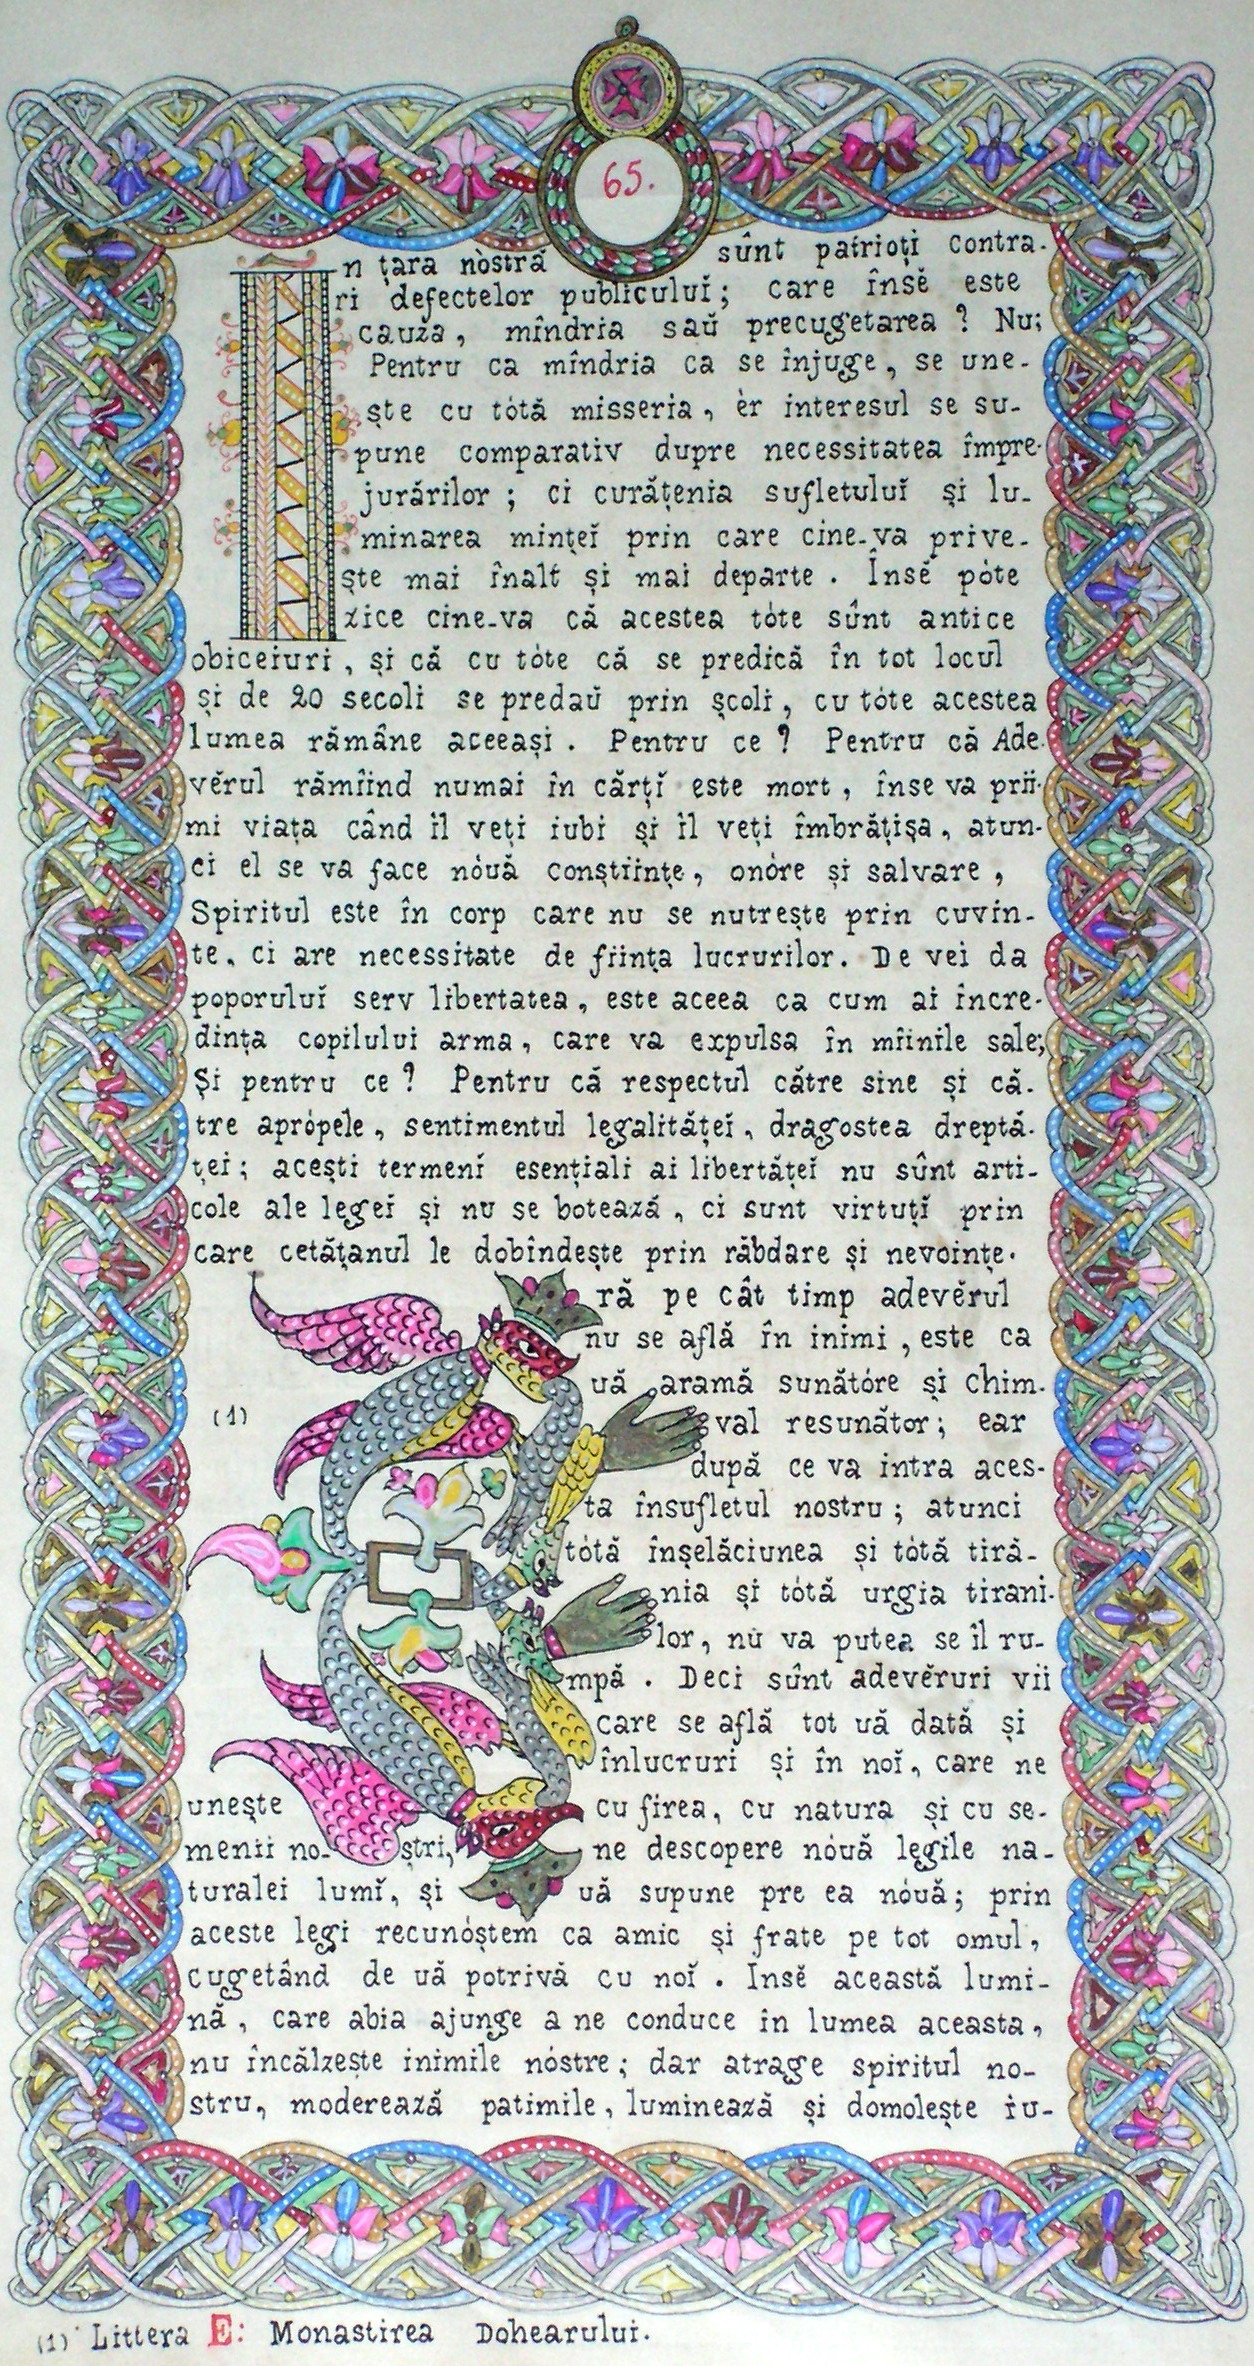 65.
In țara nòstră sûnt patrioți contra-
ri defectelor publiculuĭ; care însĕ este
cauza, mîndria saŭ precugetarea? Nu;
Pentru ca mîndria ca se înjuge, se une-
ște cu tòtă misseria, èr interesul se su-
pune comparativ dupre necessitatea împre-
jurărilor; ci curățenia sufletuluĭ și lu-
minarea minței prin care cine-va prive-
ște mai înalt și mai departe. Însĕ pòte
zice cine-va că acestea tòte sûnt antice
obiceiuri, și că cu tòte că se predică în tot locul
și de 20 secoli se predaŭ prin școli, cu tòte acestea
lumea rămâne aceeași. Pentru ce? Pentru că Ade-
vĕrul rămîind numai în cărțĭ este mort, înse va prii-
mi viața când îl veți iubi și îl veți îmbrățișa, atun-
ci el se va face nòuă conștiințe, onòre și salvare,
Spiritul este în corp care nu se nutrește prin cuvin-
te, ci are necessitate de ființa lucrurilor. De vei da
poporuluĭ serv libertatea, este aceea ca cum ai încre-
dința copilului arma, care va expulsa în mîinile sale;
Și pentru ce? Pentru că respectul către sine și că-
tre apròpele, sentimentul legalităței, dragostea dreptă-
ței; acești termenĭ esențiali ai libertățeĭ nu sûnt arti-
cole ale legeĭ și nu se botează, ci sunt virtuțĭ prin
care cetățanul le dobîndește prin răbdare și nevoințe.
ră pe cât timp adevĕrul
nu se află în inimi, este ca
uă aramă sunătóre și chim-
val resunător; ear
(1)
după ce va intra aces-
ta însufletul nostru; atunci
tòtă înșelăciunea și tòtă tiră-
nia și tòtă urgia tirani-
lor, nu va putea se îl ru-
mpă. Deci sûnt adevĕruri vii
care se află tot uă dată și
înlucruri și în noĭ, care ne
unește cu firea, cu natura și cu se-
menii no-ștri, ne descopere nòuă legile na-
turalei lumĭ, și uă supune pre ea nòuă; prin
aceste legi recunòștem ca amic și frate pe tot omul,
cugetând de uă potrivă cu noĭ. Însĕ această lumi-
nă, care abia ajunge a ne conduce în lumea aceasta,
nu încălzește inimile nòstre; dar atrage spiritul no-
stru, moderează patimile, luminează și domolește iu-
(1) Littera E: Monastirea Dohearului.